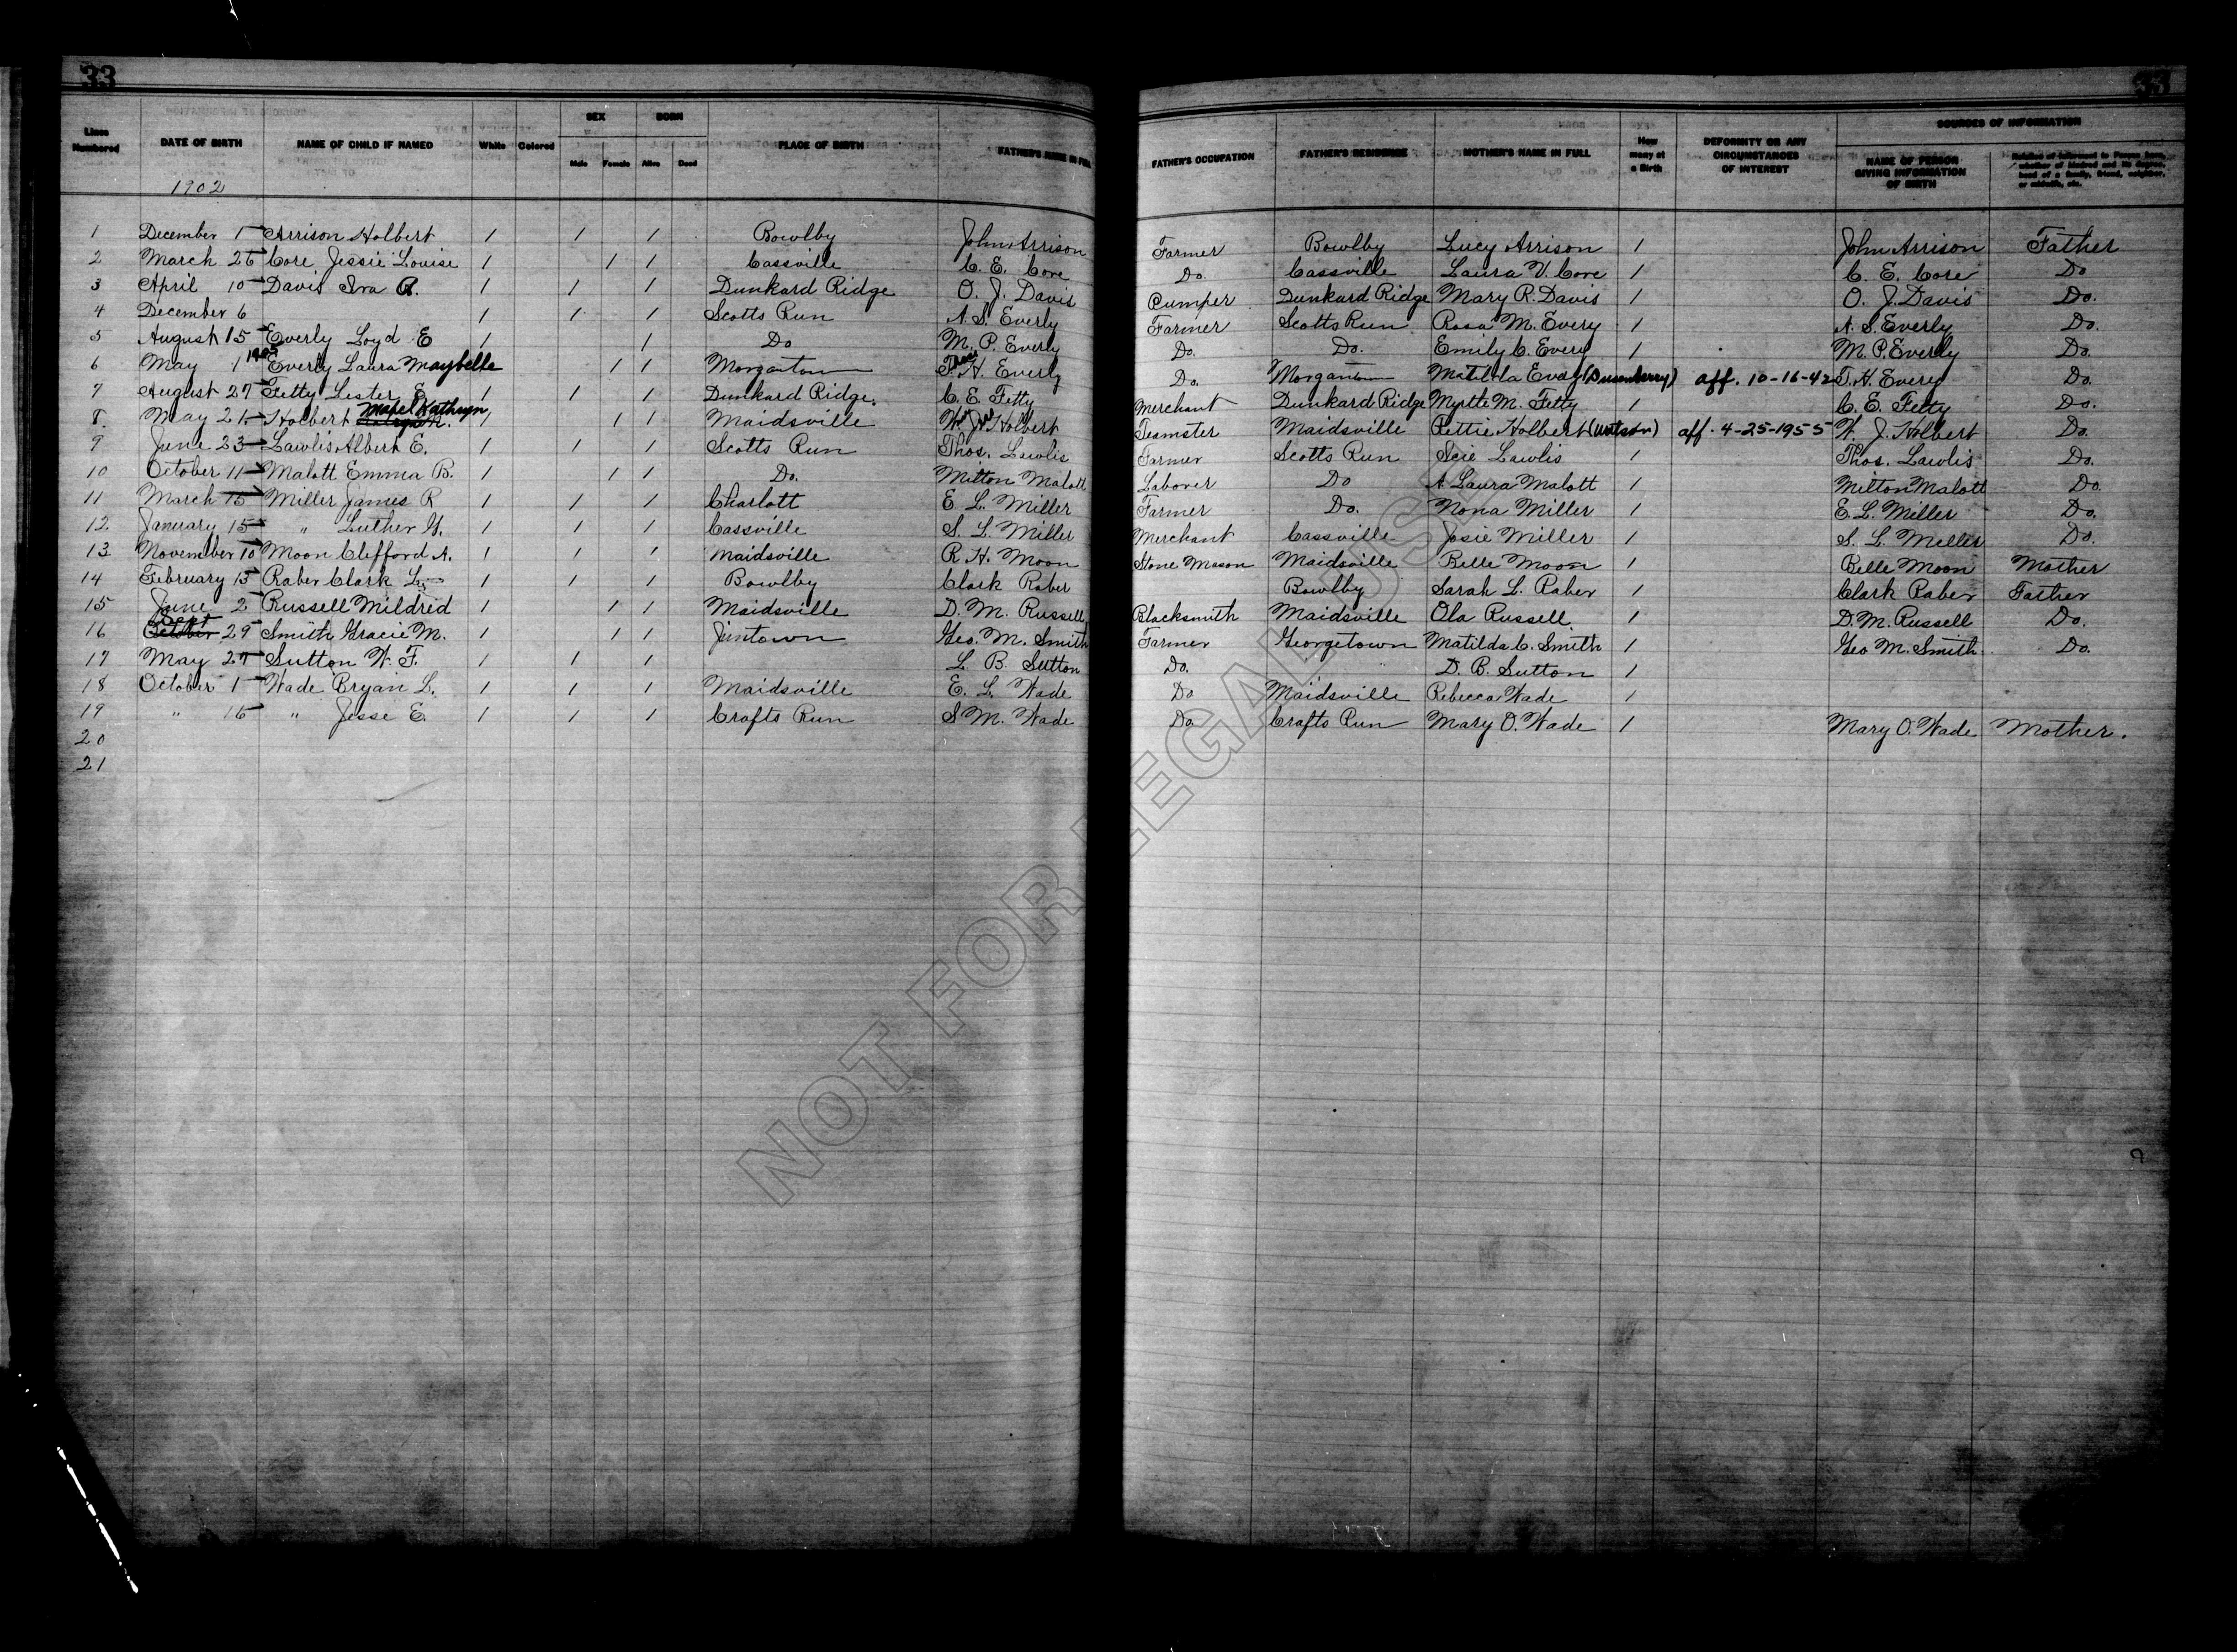 33
33
Lines Numbered DATE OF BIRTH NAME OF CHILD IF NAMED White Colored SEX Male Female BORN Alive Dead PLACE OF BIRTH FATHER'S NAME IN FULL FATHER'S OCCUPATION FATHER'S RESIDENCE MOTHER'S NAME IN FULL How many at a Birth DEFORMITY OR ANY CIRCUMSTANCES OF INTEREST SOURCES OF INFORMATION NAME OF PERSON GIVING INFORMATION OF BIRTH
1902
1 December 1 Arrison Holbert 1 1 1 Bowlby John Arrison Farmer Bowlby Lucy Arrison 1 John Arrison Father
2 March 26 Core Jessie Louise 1 1 1 Cassville C. E. Core Do. Cassville Laura V. Core 1 C. E. Core Do
3 April 10 Davis Ira R. 1 1 1 Dunkard Ridge O. J. Davis Dunkard Ridge Mary R. Davis 1 O. J. Davis Do.
4 December 6 1 1 1 Scotts Run A. S. Everly Farmer Scotts Run Rosa M. Every 1 A. S. Everly Do.
5 August 15 Everly Loyd E 1 1 Do M. P. Everly Do. Do. Emily C. Every 1 M. P. Everly Do.
6 May 1 Everly Laura Maybelle 1 1 Morgantown H. Everly Do. Morgantown Matilda Every (Dusenberry) aff. 10-16-42 T. H. Every Do.
7 August 27 Fetty Lester E. 1 1 1 Dunkard Ridge. C. E. Fetty Merchant Dunkard Ridge Myrtle M. Fetty 1 C. E. Fetty Do.
8. May 21 Holbert Mabel Kathryn 1 1 1 Maidsville Holbert Teamster Maidsville Pettie Holbert (Watson) aff. 4-25-1955 W. J. Holbert Do.
9 June 23 Lawlis Albert E. 1 1 1 Scotts Run Thos. Lawlis Farmer Scotts Run Scie Lawlis 1 Thos. Lawlis Do.
10 October 11 Malott Emma B. 1 1 1 Do. Milton Malott Laborer Do A. Laura Malott 1 Milton Malott Do.
11 March 15 Miller James R 1 1 1 Charlott E. L. Miller Farmer Do. Nona Miller 1 E. L. Miller Do.
12. January 15 " Luther H. 1 1 1 Cassville S. L. Miller Merchant Cassville Josie Miller 1 S. L. Miller Do.
13. November 10 Moon Clifford A. 1 1 1 Maidsville R. H. Moon Stone Mason Maidsville Belle Moon 1 Belle Moon Mother
14 February 15 Raber Clark L. 1 1 1 Bowlby Clark Raber Bowlby Sarah L. Raber 1 Clark Raber Father
15 June 2 Russell Mildred 1 1 1 Maidsville D. M. Russell Blacksmith Maidsville Ola Russell. 1 D. M. Russell Do.
16 Sept October 29 Smith Gracie M. 1 1 1 Jimtown Geo. M. Smith Farmer Georgetown Matilda C. Smith 1 Geo M. Smith Do.
17 May 27 Sutton W. F. 1 1 1 L. B. Sutton Do. D. B. Sutton 1
18 October 1 Wade Bryan L. 1 1 1 Maidsville E. L. Wade Do Maidsville Rebecca Wade 1
19 " 16 " Jesse E. 1 1 1 Crafts Run S M. Wade Do. Crafts Run Mary O. Wade 1 Mary O. Wade Mother.
20
21
NOT FOR LEGAL USE